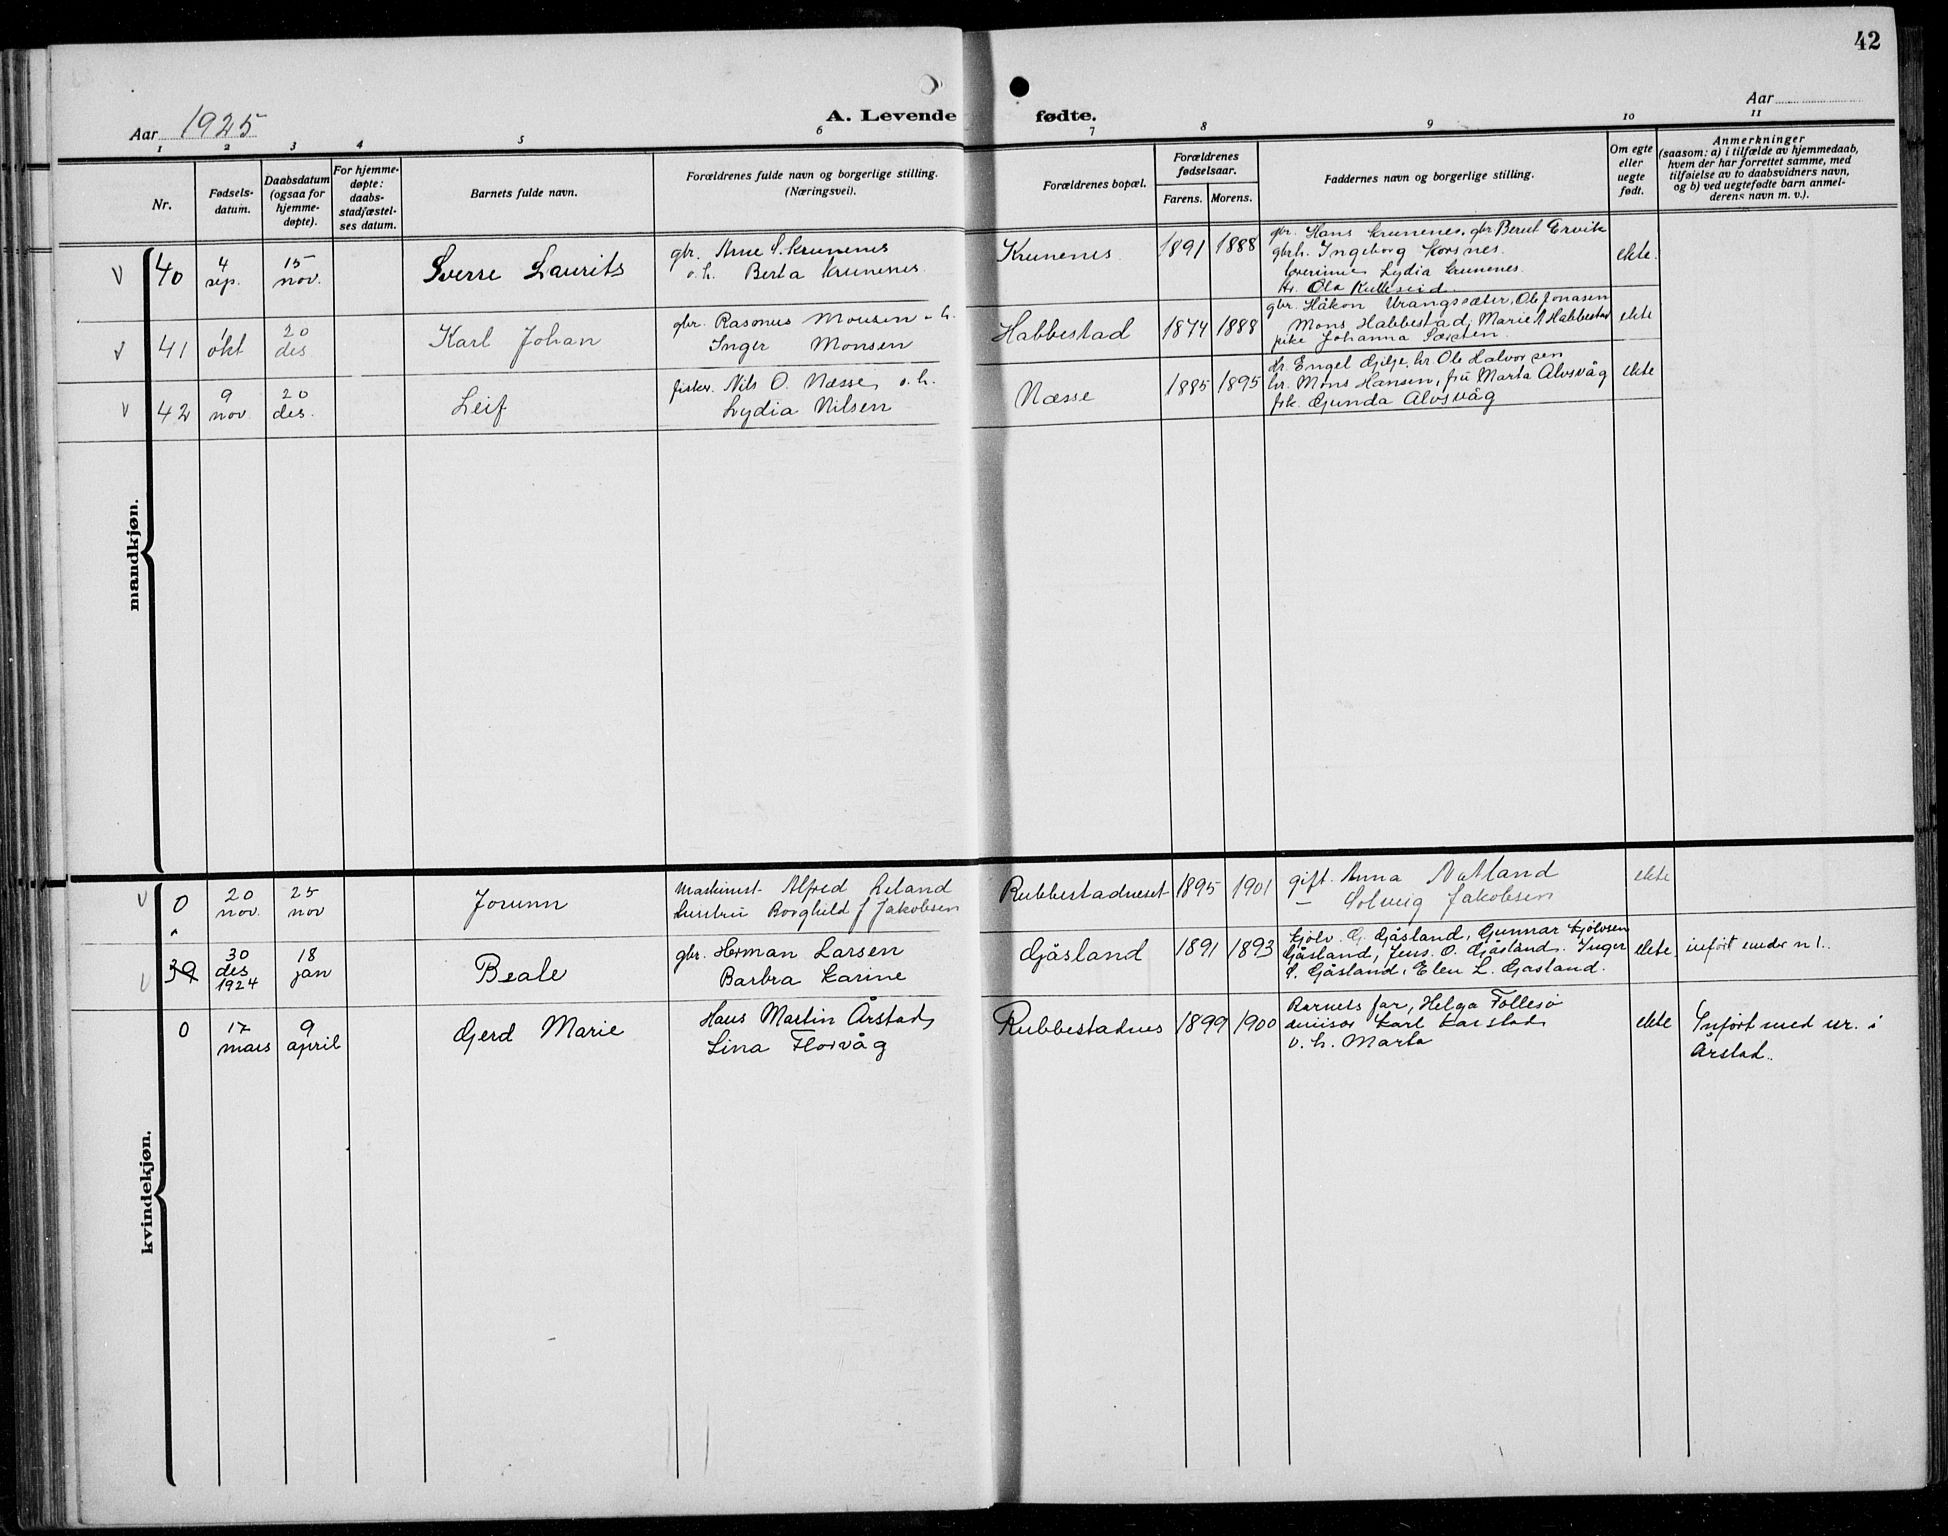 42
Aar 1925
A. Levende fødte.
Aar
1 2 3 4 5 6 7 8 9 10 11
Nr.
Fødsels-
datum.
Daabsdatum
(ogsaa for
hjemme-
døpte).
For hjemme-
døpte:
daabs-
stadfæstel-
ses datum.
Barnets fulde navn.
Forældrenes fulde navn og borgerlige stilling.
(Næringsvei).
Forældrenes bopæl.
Forældrenes
fødselsaar.
Farens. Morens.
Faddernes navn og borgerlige stilling.
Om egte
eller
uegte
født.
Anmerkninger
(saasom: a) i tilfælde av hjemmedaab,
hvem der har forrettet samme, med
tilføielse av to daabsvidners navn,
og b) ved uegtefødte barn anmel-
derens navn m. v.).
mandkjøn.
V 40
4
sep.
15
nov.
Sverre Laurits
gbr. Arne S. Krunenes
o. h. Berta Krunenes
Krunenes 1891 1888
gbr. Hans Krunenes, gbr Berut Ervik
gbrh. Ingeborg Korsnes
Lydia Krunenes
hr. Ola Kulleseid
ekte.
V 41
1
okt
20
des
Karl Johan
gbr. Rasmus Monsen o. h.
Inger Monsen
Habbestad 1874 1888
gbr. Håkon Urangssæter, Ole Jonasen
Mons Habbestad, Marie Habbestad
pike Johanna
ekte
V 42
9
nov.
20
des.
Leif
fisker. Nils O. Næsse, o. h.
Lydia Nilsen
Næsse 1885 1895
fr. Engel Gilje, hr. Ole Halvorsen
hr. Mons Hansen, frú Marta Alvsvåg
frk. Gunda Alvsvåg
ekte
kvindekjøn.
V 0
20
nov.
25
nov
Jorunn
Maskinist Alfred Leland
hustru Borghild f Jakobsen
Rubbestadneset 1895 1901
gift. Anna Natland
— Solveig Jakobsen
ekte
V 39
30
des
1924
18
jan
Beale
gbr. Herman Larsen
Barbra Karine
Gåsland 1891 1893
Kjølv. G. Gåsland, Gunnar Kjølvsen
Gåsland, Jens. O. Gåsland. Inger
S. Gåsland, Elen L. Gasland.
ekte.
inført under n 1.
0
17
mars
9
april
Gerd Marie
Hans Martin Årstad,
Lina Florvåg
Rubbestadnes 1899 1900
Barnets far, Helga Follesø
Karl Karstad
o. h. Marta
ekte
Inført med nr. i
Årstad.